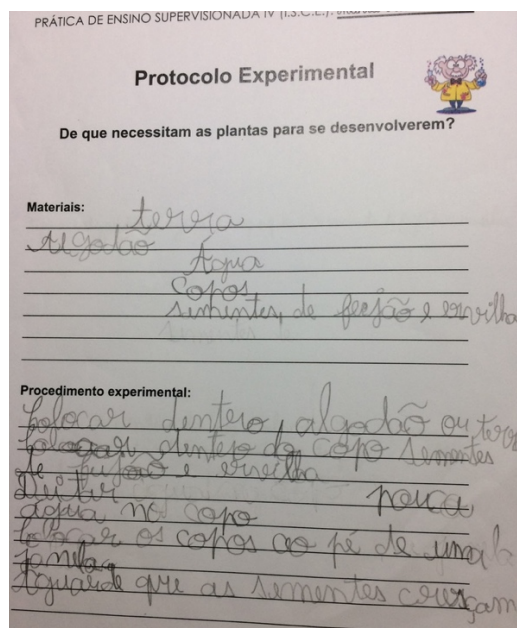 PRÁTICA DE ENSINO SUPERVISIONADA IV (I.S.C.E.):
Protocolo Experimental
De que necessitam as plantas para se desenvolverem?
Materiais:
terra
Algodão
Água
Copos
sementes, de feijão e ervilha
Procedimento experimental:
Colocar dentero, algodão ou terr
Colocar dentero do copo sementes
de feijão e ervilha
Deitar pouca
água no copo
Colocar os copos ao pé de uma
janela
Aguarde que as sementes cresçam